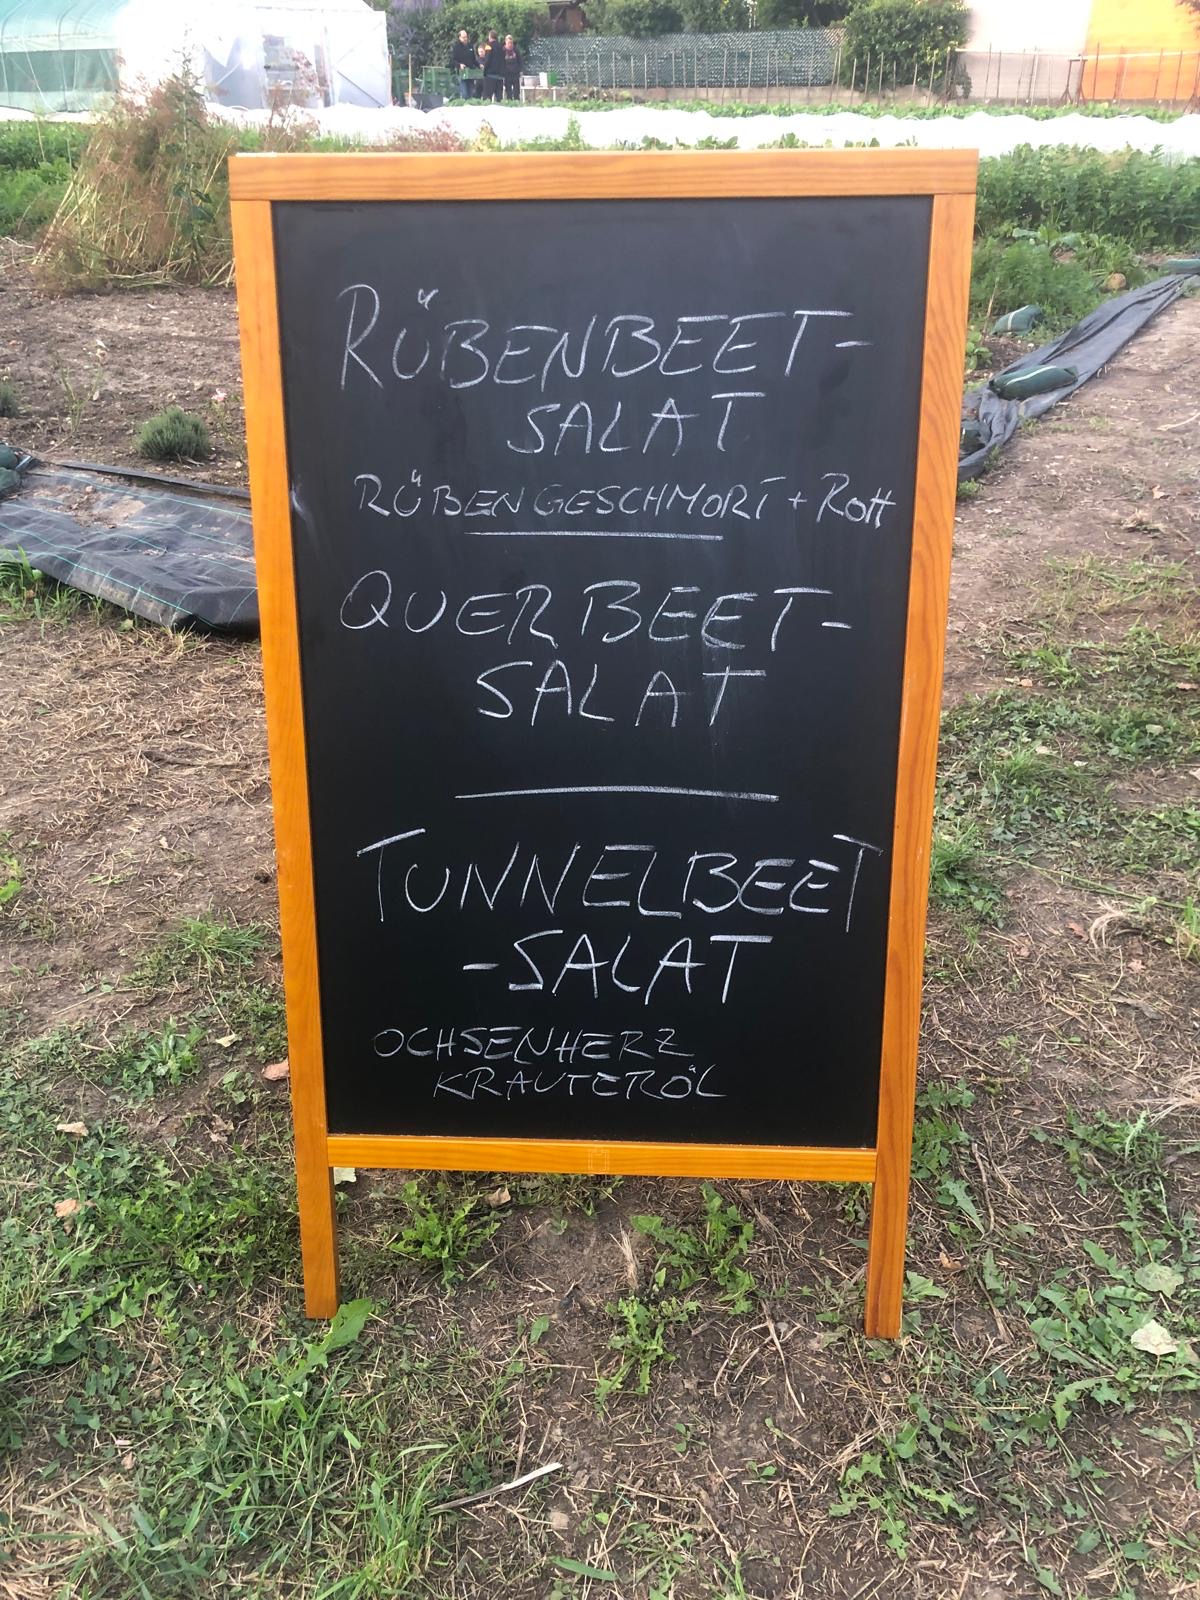 RÜBENBEET-
SALAT
RÜBEN GESCHMORT + ROH
QUERBEET-
SALAT
TUNNELBEET
-SALAT
OCHSENHERZ
KRAUTERÖL